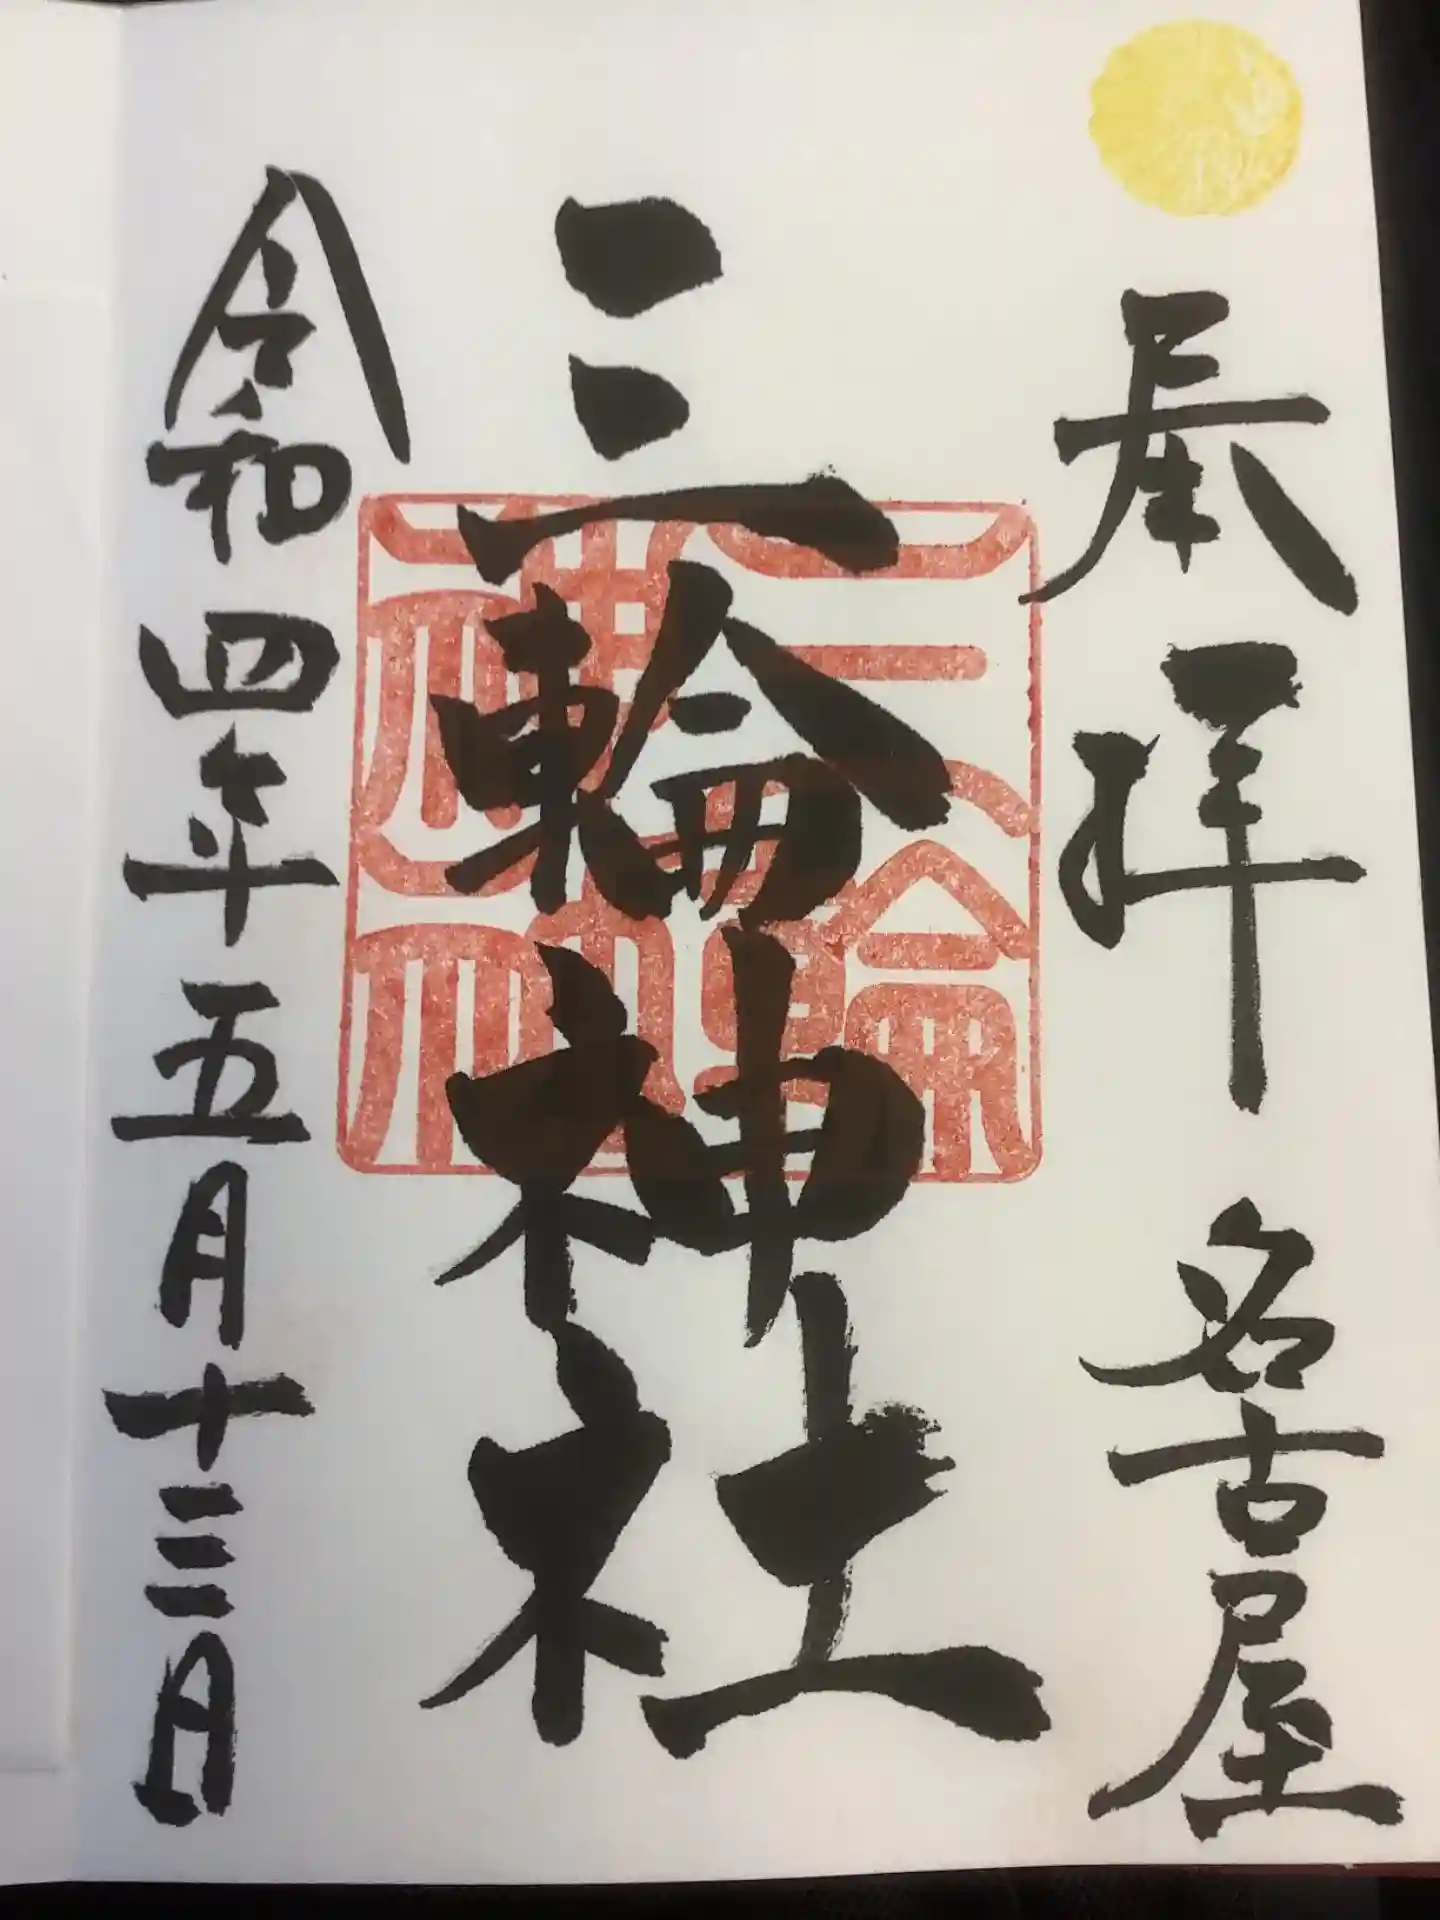 奉拝 名古屋
三輪神社
三輪神社
令和四年五月十三日